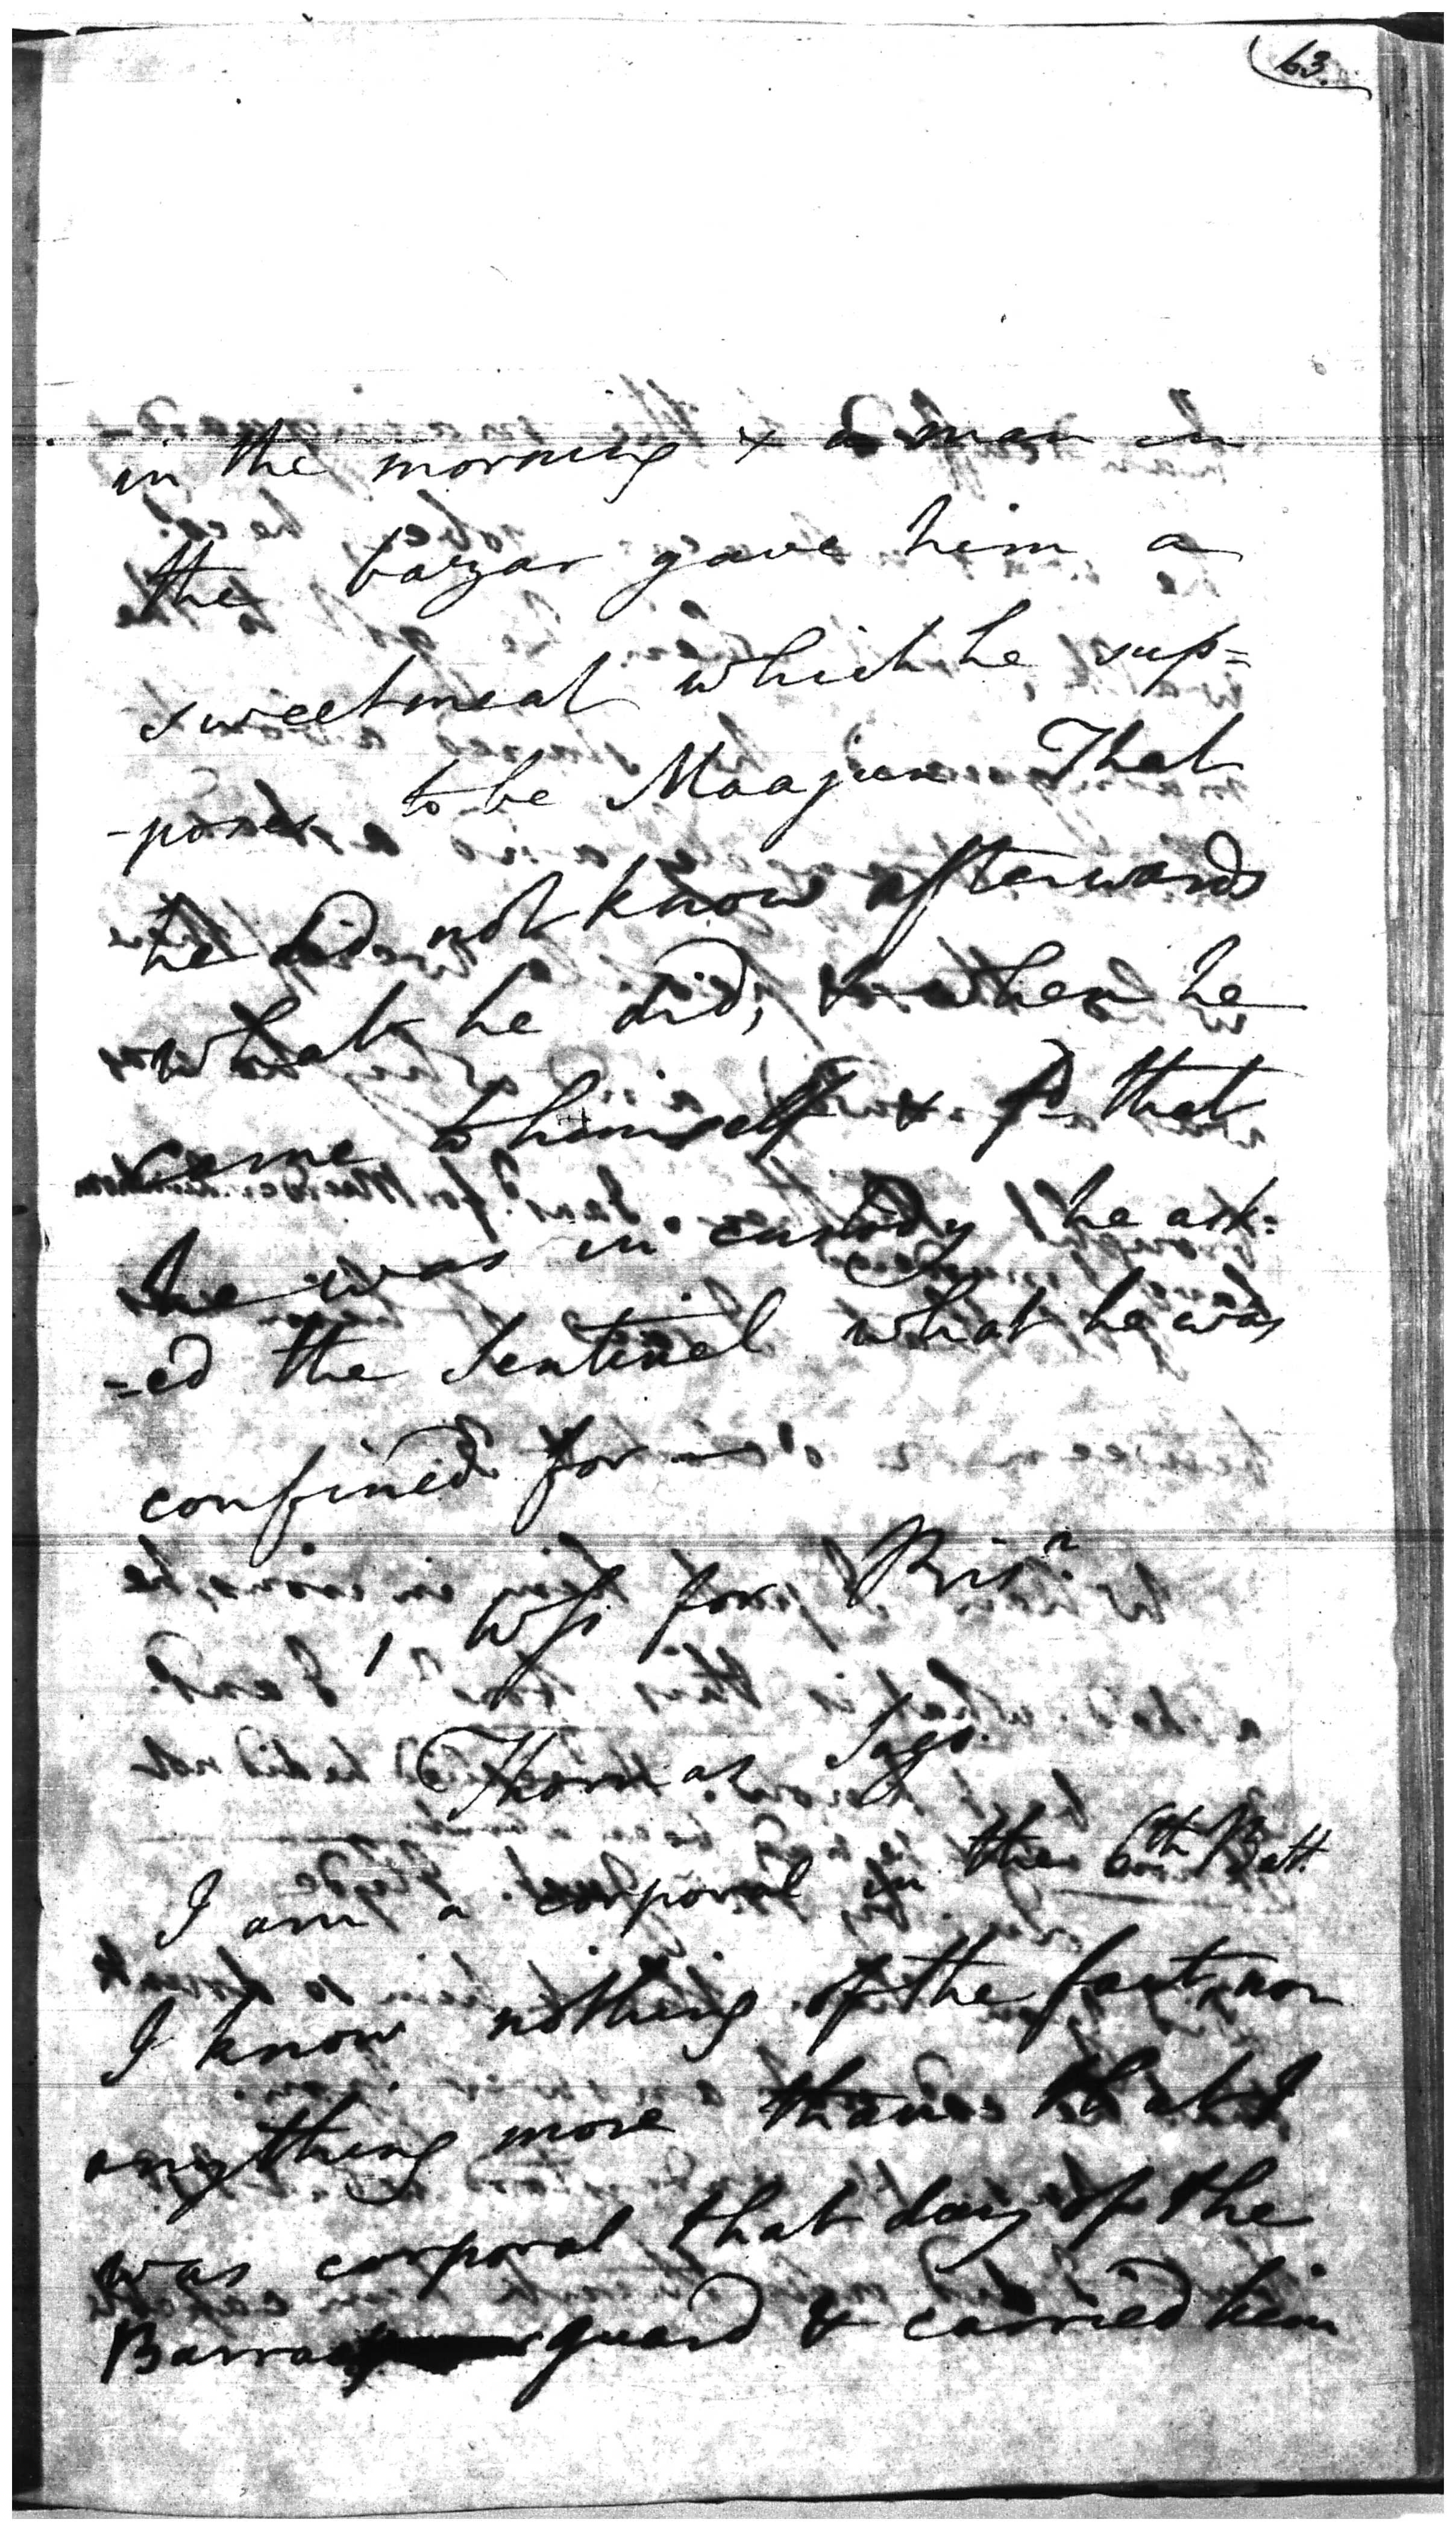 63.
in the morning & a man in
the bazar gave him a
sweetmeat which he sup=
-poses to be Maajun That
he did not know afterwards
what he did, & when he
came to himself & that
he was in custody he ask=
=ed the Sentinel what he was
confined for —
1, Wss for Prisr.
Thomas
I am a corporal in the 6th Batt.
I know nothing of the fact, nor
anything more than that I
was corporal that day of the
Barrack guard & carried him